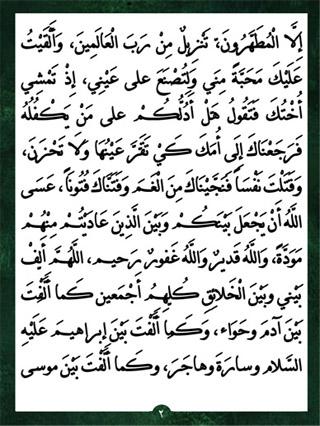 إِلَّا الْمُطَهَّرُونَ، تَنْزِيلٌ مِنْ رَبِّ الْعَالَمِينَ، وَأَلْقَيْتُ
عَلَيْكَ مَحَبَّةً مِنِّي وَلِتُصْنَعَ عَلَى عَيْنِي، إِذْ تَمْشِي
أُخْتُكَ فَتَقُولُ هَلْ أَدُلُّكُمْ عَلَى مَنْ يَكْفُلُهُ
فَرَجَعْنَاكَ إِلَى أُمِّكَ كَيْ تَقَرَّ عَيْنُهَا وَلَا تَحْزَنَ،
وَقَتَلْتَ نَفْساً فَنَجَّيْنَاكَ مِنَ الْغَمِّ وَفَتَنَّاكَ فُتُوناً، عَسَى
اللَّهُ أَنْ يَجْعَلَ بَيْنَكُمْ وَبَيْنَ الَّذِينَ عَادَيْتُمْ مِنْهُمْ
مَوَدَّةً، وَاللَّهُ قَدِيرٌ وَاللَّهُ غَفُورٌ رَحِيم، اللَّهُمَّ أَلِّفْ
بَيْنِي وَبَيْنَ الْخَلَائِقِ كُلِّهِمْ أَجْمَعِين كَمَا أَلَّفْتَ
بَيْنَ آدَمَ وَحَوَاء، وَكَمَا أَلَّفْتَ بَيْنَ إِبْرَاهِيمَ عَلَيْهِ
السَّلَام وَسَارَةَ وَهَاجَرَ، وَكَمَا أَلَّفْتَ بَيْنَ مُوسَى
٢